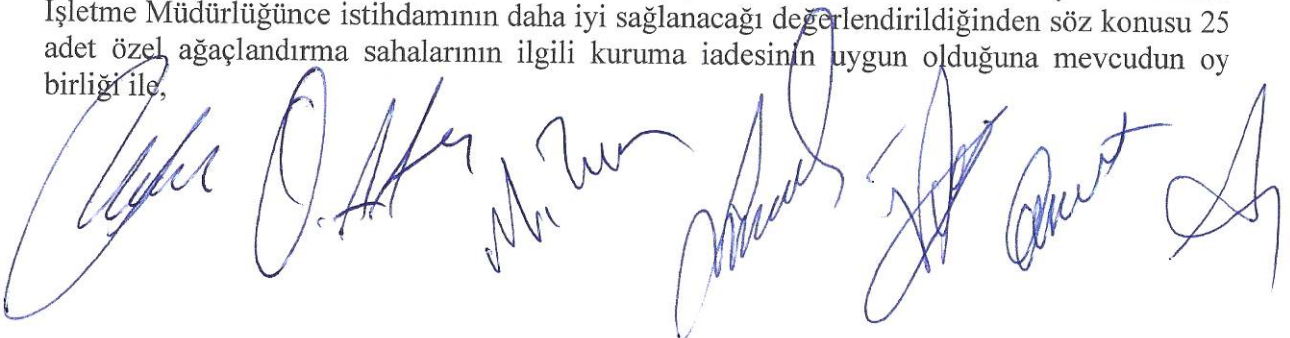 İşletme Müdürlüğünce istihdamının daha iyi sağlanacağı değerlendirildiğinden söz konusu 25
adet özel ağaçlandırma sahalarının ilgili kuruma iadesinin uygun olduğuna mevcudun oy
birliği ile,